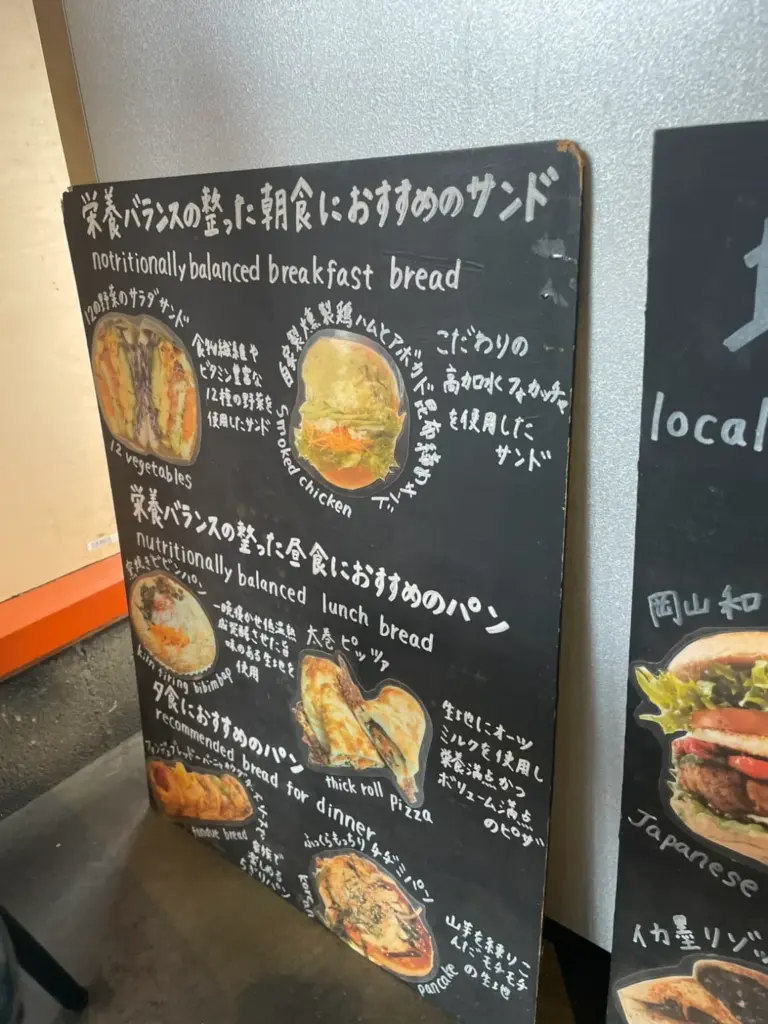 栄養バランスの整った朝食におすすめのサンド
notritionally balanced breakfast bread
12の野菜のサラダサンド
食物繊維や
ビタミン豊富な
12種の野菜を
使用したサンド
12 vegetables
自家製燻製鶏ハムとアボカド昆布締めサンド
Smoked chicken
こだわりの
高加水フォカッチャ
を使用した
サンド
栄養バランスの整った昼食におすすめのパン
nutritionally balanced lunch bread
窯焼きビビンパン
kiln firing bibimbap
一晩寝かせ低温熟
成発酵させた旨
味のある生地を
使用
大巻ピッツァ
thick roll pizza
生地にオーツ
ミルクを使用し
栄養満点かつ
ボリューム満点
のピザ
夕食におすすめのパン
recommended bread for dinner
fondue bread
家族で
楽しめる
ふっくらもっちりチヂミパン
pancake
山芋を練りこ
んだモチモチ
の生地
local
岡山和
Japanese
イカ墨リゾッ